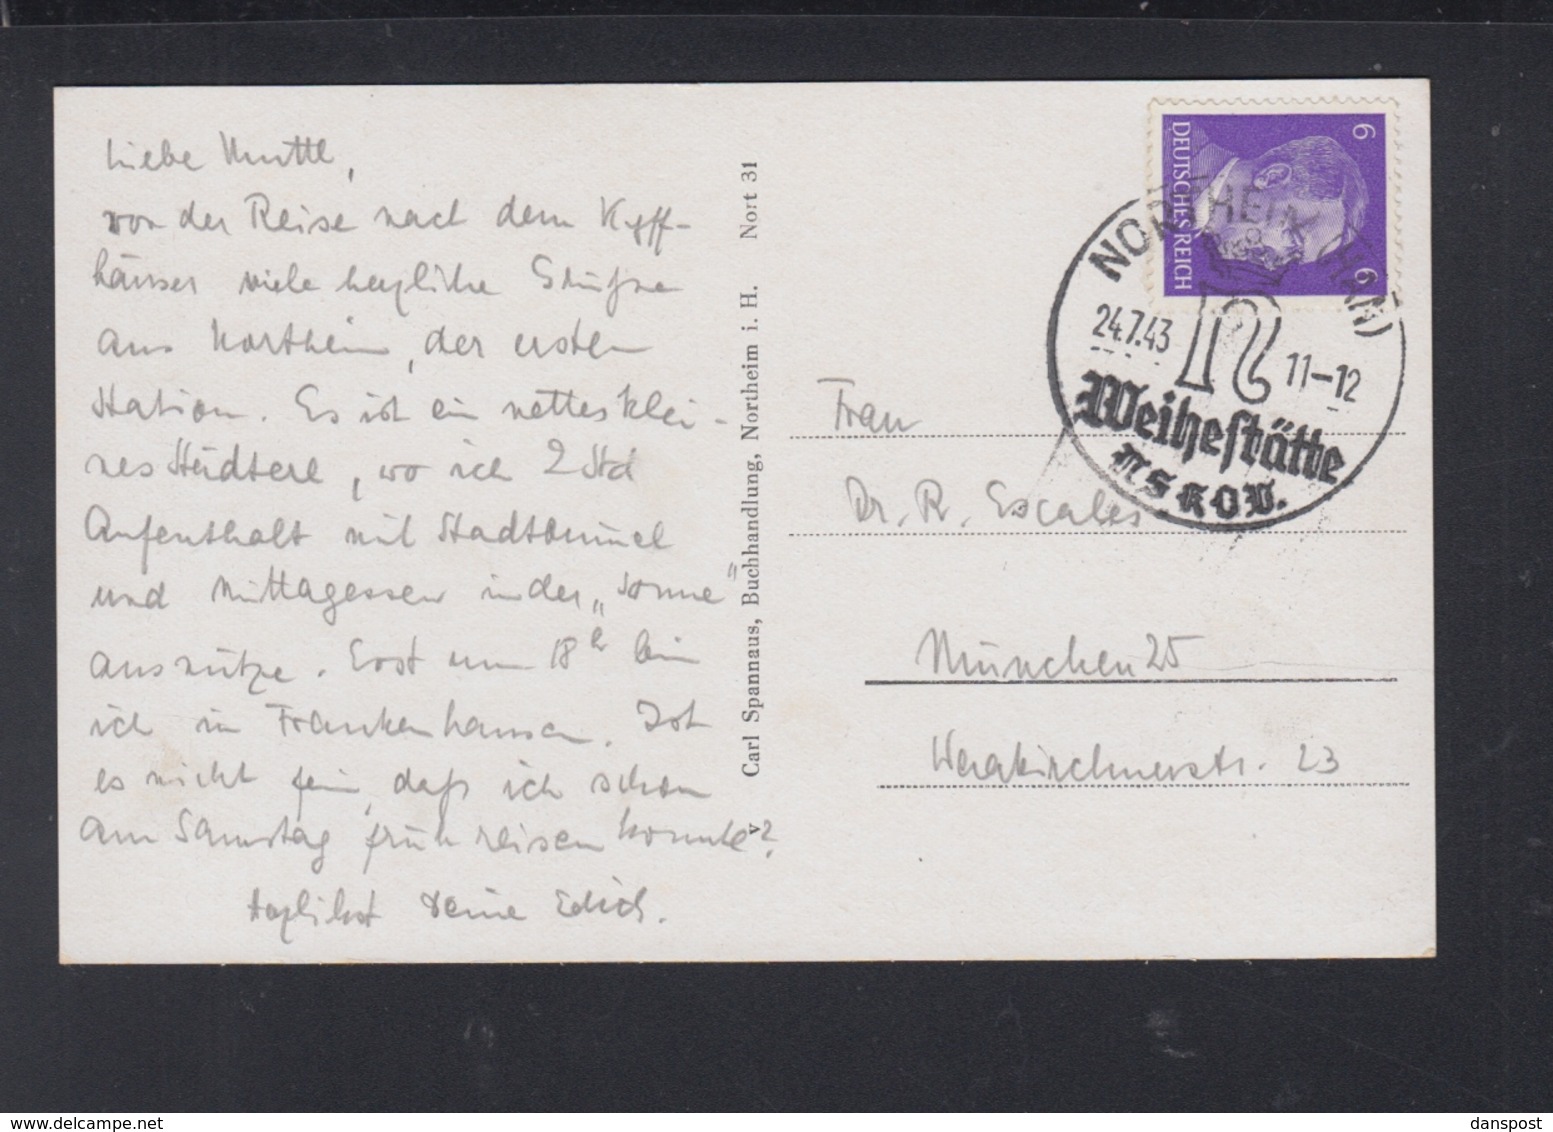 Liebe Muttl,
von der Reise nach dem Kyff-
häuser viele herzliche Grüße
aus Northeim, der ersten
Station. Es ist ein nettes klei-
nes Städterl, wo ich 2 Std
Aufenthalt mit Stadtbummel
und Mittagessen in der „Sonne"
ausnütze. Erst um 18 h bin
ich in Frankenhausen. Ist
es nicht fein, daß ich schon
am Samstag früh reisen konnte?
Herzlichst Deine
Carl Spannaus, Buchhandlung, Northeim i. H. Nort 31
v
6 6
DEUTSCHES REICH
NORTHEIM (HAN)
24.7.43 11-12
Weihestätte
NSKOV.
Frau
Dr. R. Escales
München 25
23
danspost